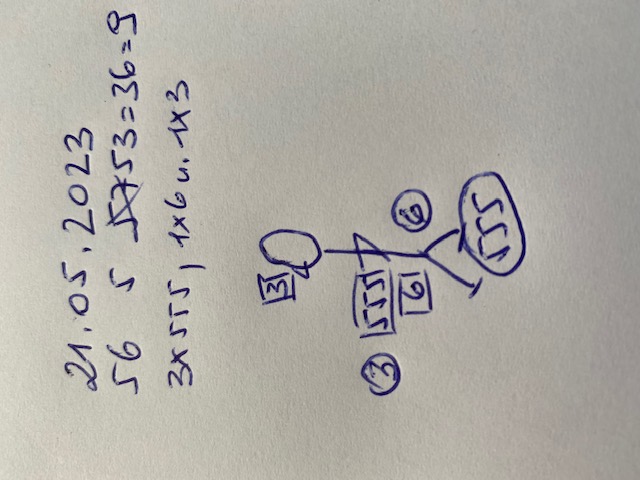 21.05.2023
56 5 5753=36=9
3x555, 1x6 u. 1x3
3
6
555
6
555
3